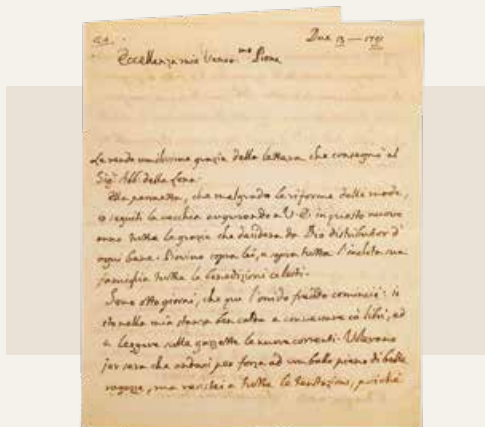 Eccellenza mio Veneo.mo Prone
Le rendo umilissime grazie della lettera che consegnò al
Sig.r Abb. della Lena.
Ella permetta, che malgrado le riforme delle mode,
io seguiti la vecchia augurando a V. E. in questo nuovo
anno tutte le grazie che desidera da Dio distributor d'
ogni bene. Piovino sopra lei, e sopra tutta l'inclita sua
famiglia tutte le benedizioni celesti.
Sono otto giorni, che qui l'orrido freddo cominciò: io
sto nella mia stanza ben calda a conversare coi libri, ed
a leggere sulle gazzette le nuove correnti. Volevano
jer sera che andassi per forza ad un ballo pieno di belle
ragazze, ma resistei a tutte le tentazioni, poichè